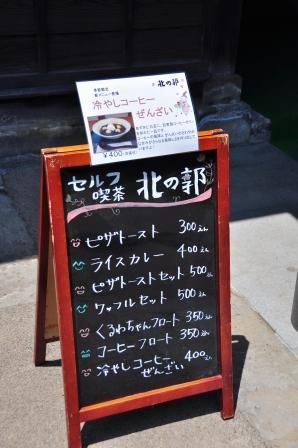 季節限定
新メニュー登場
北の郭
冷やしコーヒー
ぜんざい
¥400
セルフ
喫茶 北の郭
ピザトースト 300えん
ライスカレー 400えん
ピザトーストセット 500えん
ワッフルセット 500えん
くるわちゃんフロート 350えん
コーヒーフロート 350えん
冷やしコーヒー 400えん
ぜんざい